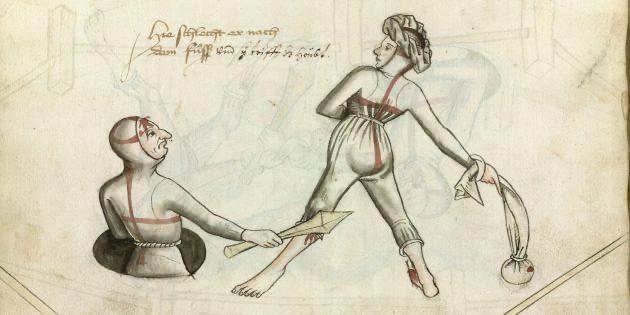 Hie schlecht er nach
dem fuß vnd sy triff dz höubt.